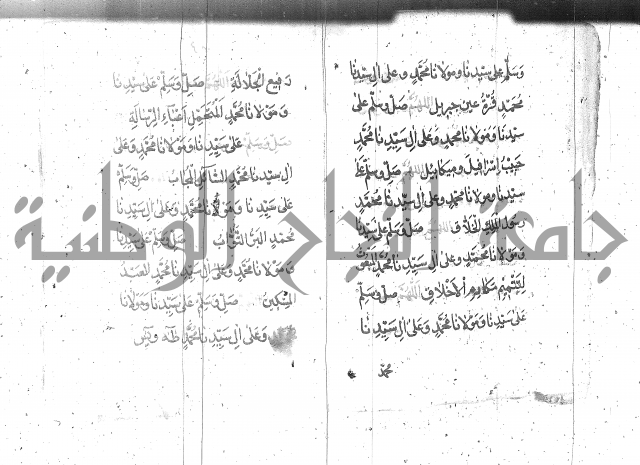 وسلم على سيدنا ومولانا محمد وعلى ال سيدنا
محمد قرة عين جبريل اللهم صل وسلم على
سيدنا ومولانا محمد وعلى ال سيدنا محمد
حبيب إسرافيل وميكائيل اللهم صل وسلم على
سيدنا ومولانا محمد وعلى ال سيدنا محمد
رسول الملك الخلاق اللهم صل وسلم على سيدنا
ومولانا محمد وعلى ال سيدنا محمد المبعوث
لتتميم مكارم الأخلاق اللهم صل وسلم
على سيدنا ومولانا محمد وعلى ال سيدنا
محمد
رفيع الجلالة اللهم صل وسلم على سيدنا
ومولانا محمد المتحمل اعباء الرسالة
صل وسلم على سيدنا ومولانا محمد وعلى
ال سيدنا محمد الشاكر المجاب صل وسلم
على سيدنا ومولانا محمد وعلى ال سيدنا
محمد النبي التواب صل وسلم على سيدنا
ومولانا محمد وعلى ال سيدنا محمد
صل وسلم على سيدنا ومولانا
وعلى ال سيدنا محمد طه
جامعة النجاح الوطنية